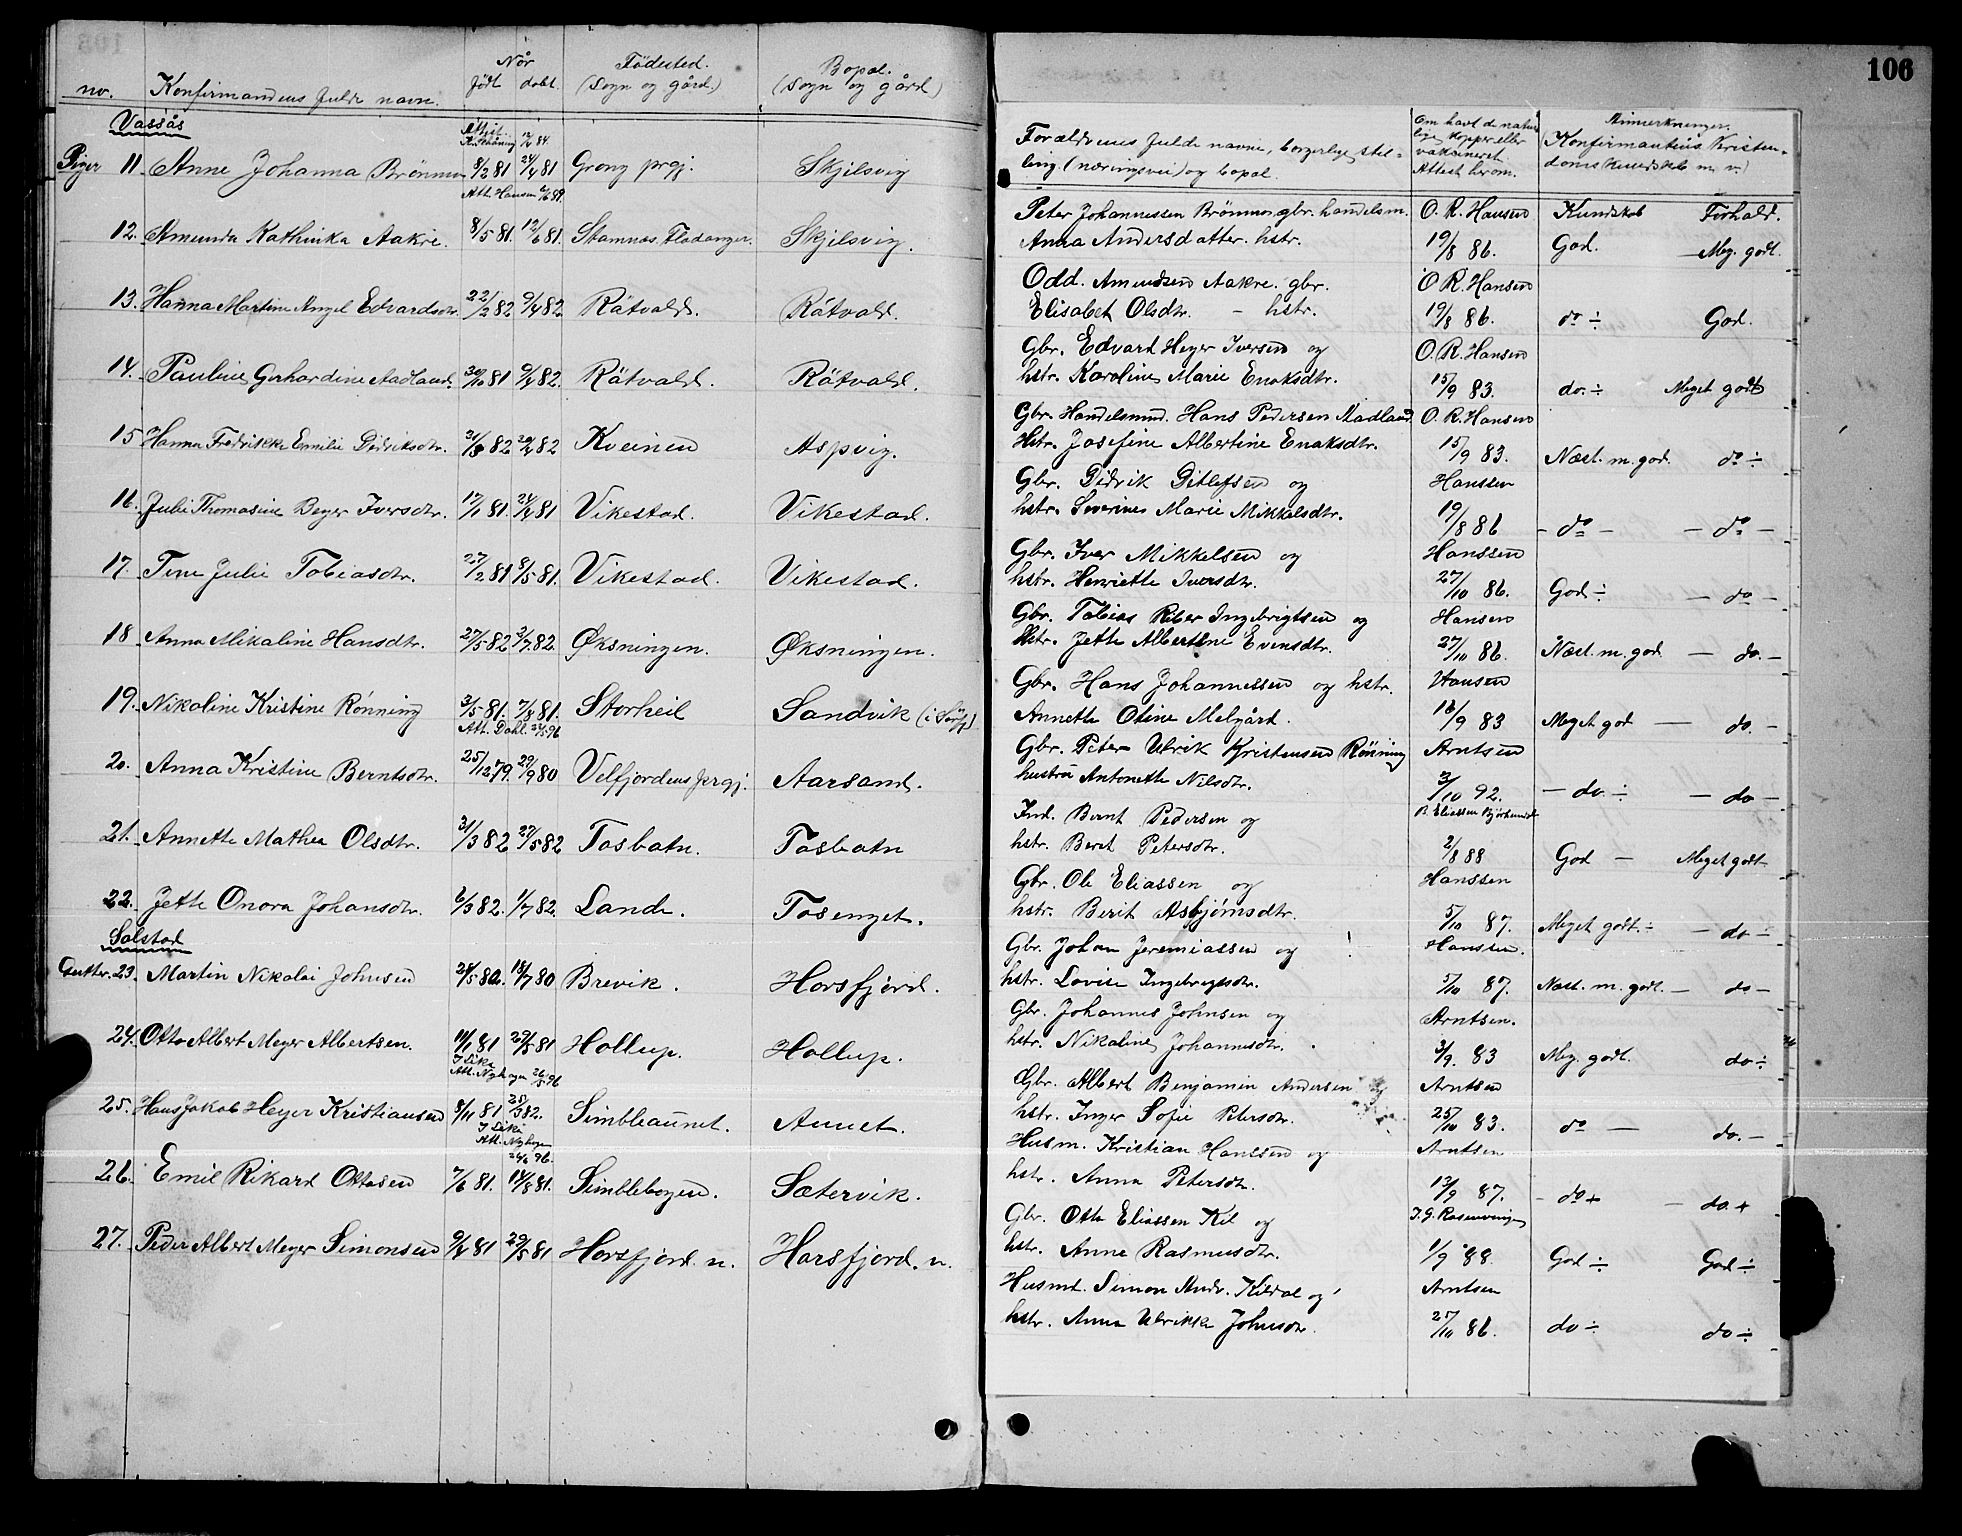 106
no. Konfirmandens fulde navn. Når født døbt. Födested. (Sogn og gård.) Bopæl. (Sogn og gård)
Vassås
Piger 11. Anne Johanna Brönmo 8/2 81 24/4 81 Grong prgj. Skjelsvig
12. Amunda Kathinka Aakre. 8/5 81. 12/6 81. Stamnes, Fladanger. Skjelsvig.
13. Hanna Martine Angel Edvardsdtr. 22/2 82 9/4 82 Råtvald. Råtvald.
14. Pauline Gerhardine Aadland. 30/10 81 9/4 82. Råtvald. Råtvald.
15 Hanna Fredrikke Emilie Didriksdtr. 82 82 Kveinen Aspvig.
16. Julie Thomasine Beyer Iversdtr. 17/1 81. 24/4 81 Vikestad. Vikestad.
17. Tine Julie Tobiasdtr. 27/2 81 8/5 81. Vikestad. Vikestad.
18 Anna Mikaline Hansdtr. 27/5 82 2/7 82. Øksningen. Øksningen.
19. Nikoline Kristine Rönning 3/5 81. 7/8 81. Storheil Sandvik
Att. Dahl.
20. Anna Kristine Berntsdtr. 25/12 79. 29/9 80 Velfjordens prgj. Aarsand.
21. Annette Mathea Olsdtr. 31/3 82 29/5 82 Tosbotn. Tosbotn
22. Jette Onora Johansdtr. 6/3 82. 1/7 82. Lande. Tosenget.
Solstad
Gutter. 23. Martin Nikolai Johnsen 28/5 80. 18/7 80 Brevik. Horsfjord.
24. Otto Albert Meyer Albertsen. 11/1 81 29/5 81 Hollup. Hollup.
25. Hans Jakob Heyer Kristiansen 8/11 81 82. Simbleaunet. Aunet.
26. Emil Rikard Ottosen 7/6 81. 14/8 81. Simblebogen. Sætervik.
27. Peder Albert Meyer Simonsen 9/4 81 29/5 81 Horsfjord. n. Horsfjord. n.
Forældrenes fulde navne, borgerlige stil-
ling (næringsvei) og bopæl.
Om havt de natur-
lige kopper eller
vaksineret
Attest herom.
Anmerkninger.
Konfirmantens Kristen-
doms kundskab m. v.)
Peter Johannessen Brönmo, gbr. handelsm. O. R. Hansen Kundskab Forhold.
Anna Andersdatter. hstr. 19/8 86. God. Meg. godt.
Odd. Amundsen Aakre. gbr. O. R. Hansen
Elisabet Olsdtr. - hstr. 19/8 86. do ÷ God.
Gbr. Edvard Heyer Iversen og O. R. Hansen
hstr. Karoline Marie Enoksdtr. 15/9 83. do. ÷ Meget godt
Gbr. Handelsmd. Hans Pedersen Aadland. O. R. Hansen
Hstr. Josefine Albertine Enoksdtr. 15/9 83. Næst. m. god. do ÷
Gbr. Didrik Ditlefsen og Hanssen
hstr. Severine Marie Mikkelsdtr. 19/8 86 - do - - do -
Gbr. Iver Mikkelsen og Hanssen
hstr. Henriette Iversdtr. 27/10 86. God ÷ - do -
Gbr. Tobias Riber Ingebrigtsen og Hansen
Hstr. Jette Albertine Evensdtr. 27/10 86. Næst. m. god. - do. -
Gbr. Hans Johannessen og hstr. Hansen
Annette Otine Melgård. 18/9 83 Meget god - do. -
Gbr. Peter Ulrik Kristensen Rönning Arntsen
hustru Antonette Nilsdtr. 3/10 92. - do. ÷ - do -
Ind. Bernt Pedersen og B. Eliassen
hstr. Beret Petersdtr. 2/8 88 God - Meget godt
Gbr. Ole Eliassen og Hanssen
hstr. Berit Asbjörnsdtr. 5/10 87. Meget godt. ÷ - do ÷
Gbr. Johan Jeremiassen og Hanssen.
hstr. Lovise Ingebrigtsdtr. 5/10 87. Næst. m. godt. - do -
Gbr. Johannes Johnsen og Arntsen.
hstr. Nikoline Johannesdtr. 3/9. 83 Meg. godt. do ÷
Gbr. Albert Benjamin Andersen og Arntsen
hstr. Inger Sofie Petersdtr. 25/10 83. do - do. -
Husm. Kristian Hanssen og Arntsen
hstr. Anna Petersdtr. 13/9 87. - do + - do. +
Gbr. Otto Eliassen Kil og J. G. Rosenvinge
hstr. Anne Rasmusdtr. 1/9 88. God ÷ God ÷
Husmd. Simon Andr. Kildal og Arntsen
hstr. Anna Ulrikke Johnsdtr. 25/10 86. do ÷ do ÷